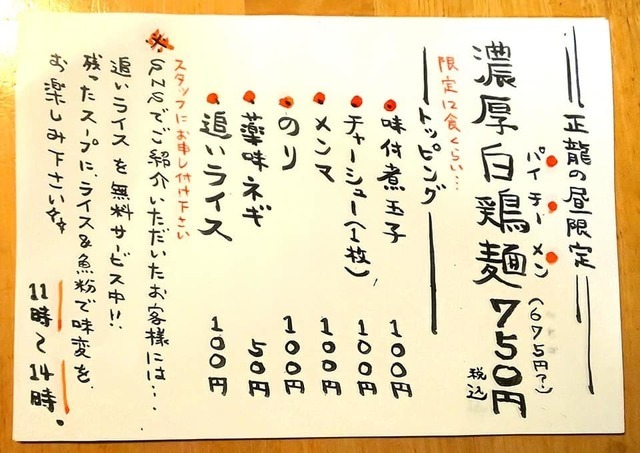 正龍の昼限定
パイチーメン
濃厚白鶏麺 750円
税込
限定12食くらい…
トッピング
味付煮玉子 100円
チャーシュー(1枚) 100円
メンマ 100円
のり 100円
薬味ネギ 50円
追いライス 100円
スタッフにお申し付け下さい
※SNSでご紹介いただいたお客様には…
追いライスを無料サービス中!!
残ったスープに、ライス&魚粉で味変を
お楽しみ下さい☆☆
11時〜14時.